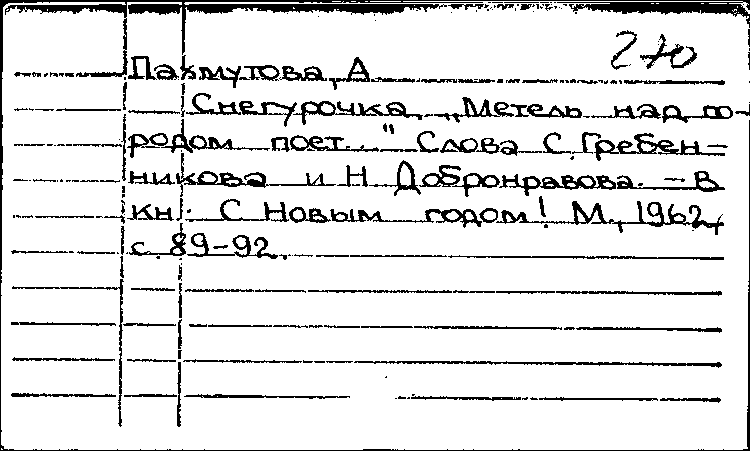 270
Пахмутова, А.
Снегурочка. „Метель над го-
родом поет..." Слова С. Гребен-
никова и Н. Добронравова. - В
кн.: С Новым годом! М., 1962,
с. 89-92.